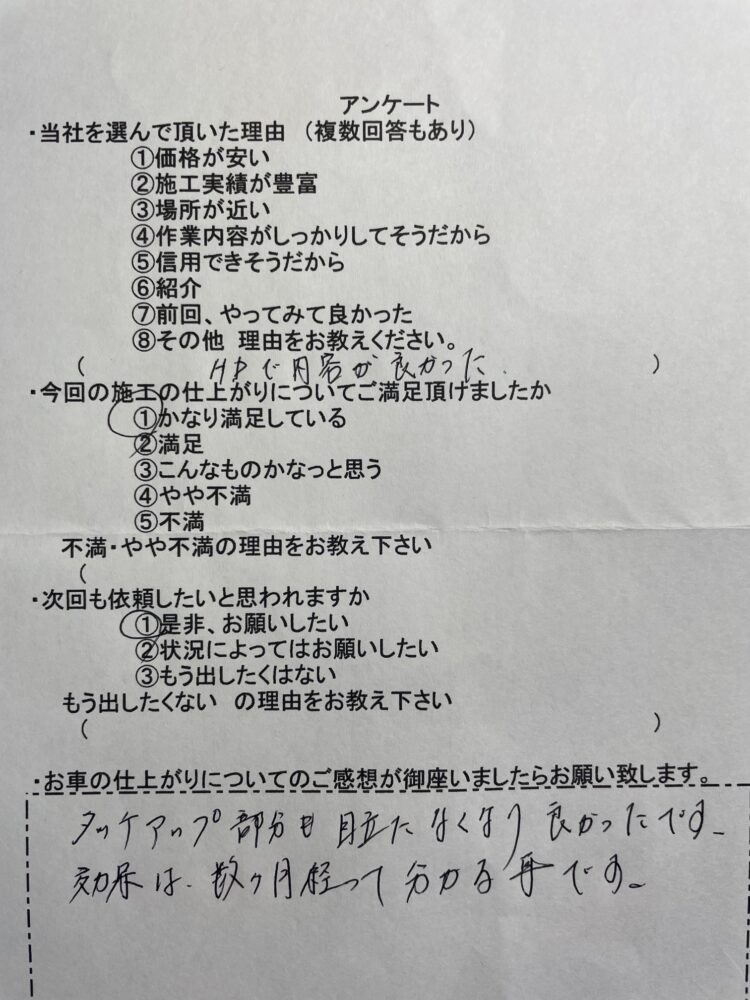 アンケート
・当社を選んで頂いた理由 （複数回答もあり）
①価格が安い
②施工実績が豊富
③場所が近い
④作業内容がしっかりしてそうだから
⑤信用できそうだから
⑥紹介
⑦前回、やってみて良かった
⑧その他 理由をお教えください。
（ HPで内容が良かった. ）
・今回の施工の仕上がりについてご満足頂けましたか
①かなり満足している
②満足
③こんなものかなっと思う
④やや不満
⑤不満
不満・やや不満の理由をお教え下さい
（
・次回も依頼したいと思われますか
①是非、お願いしたい
②状況によってはお願いしたい
③もう出したくはない
もう出したくない の理由をお教え下さい
（ ）
・お車の仕上がりについてのご感想が御座いましたらお願い致します。
タッチアップ部分も目立たなくなり良かったです。
効果は、数ヶ月経って分かる事です。